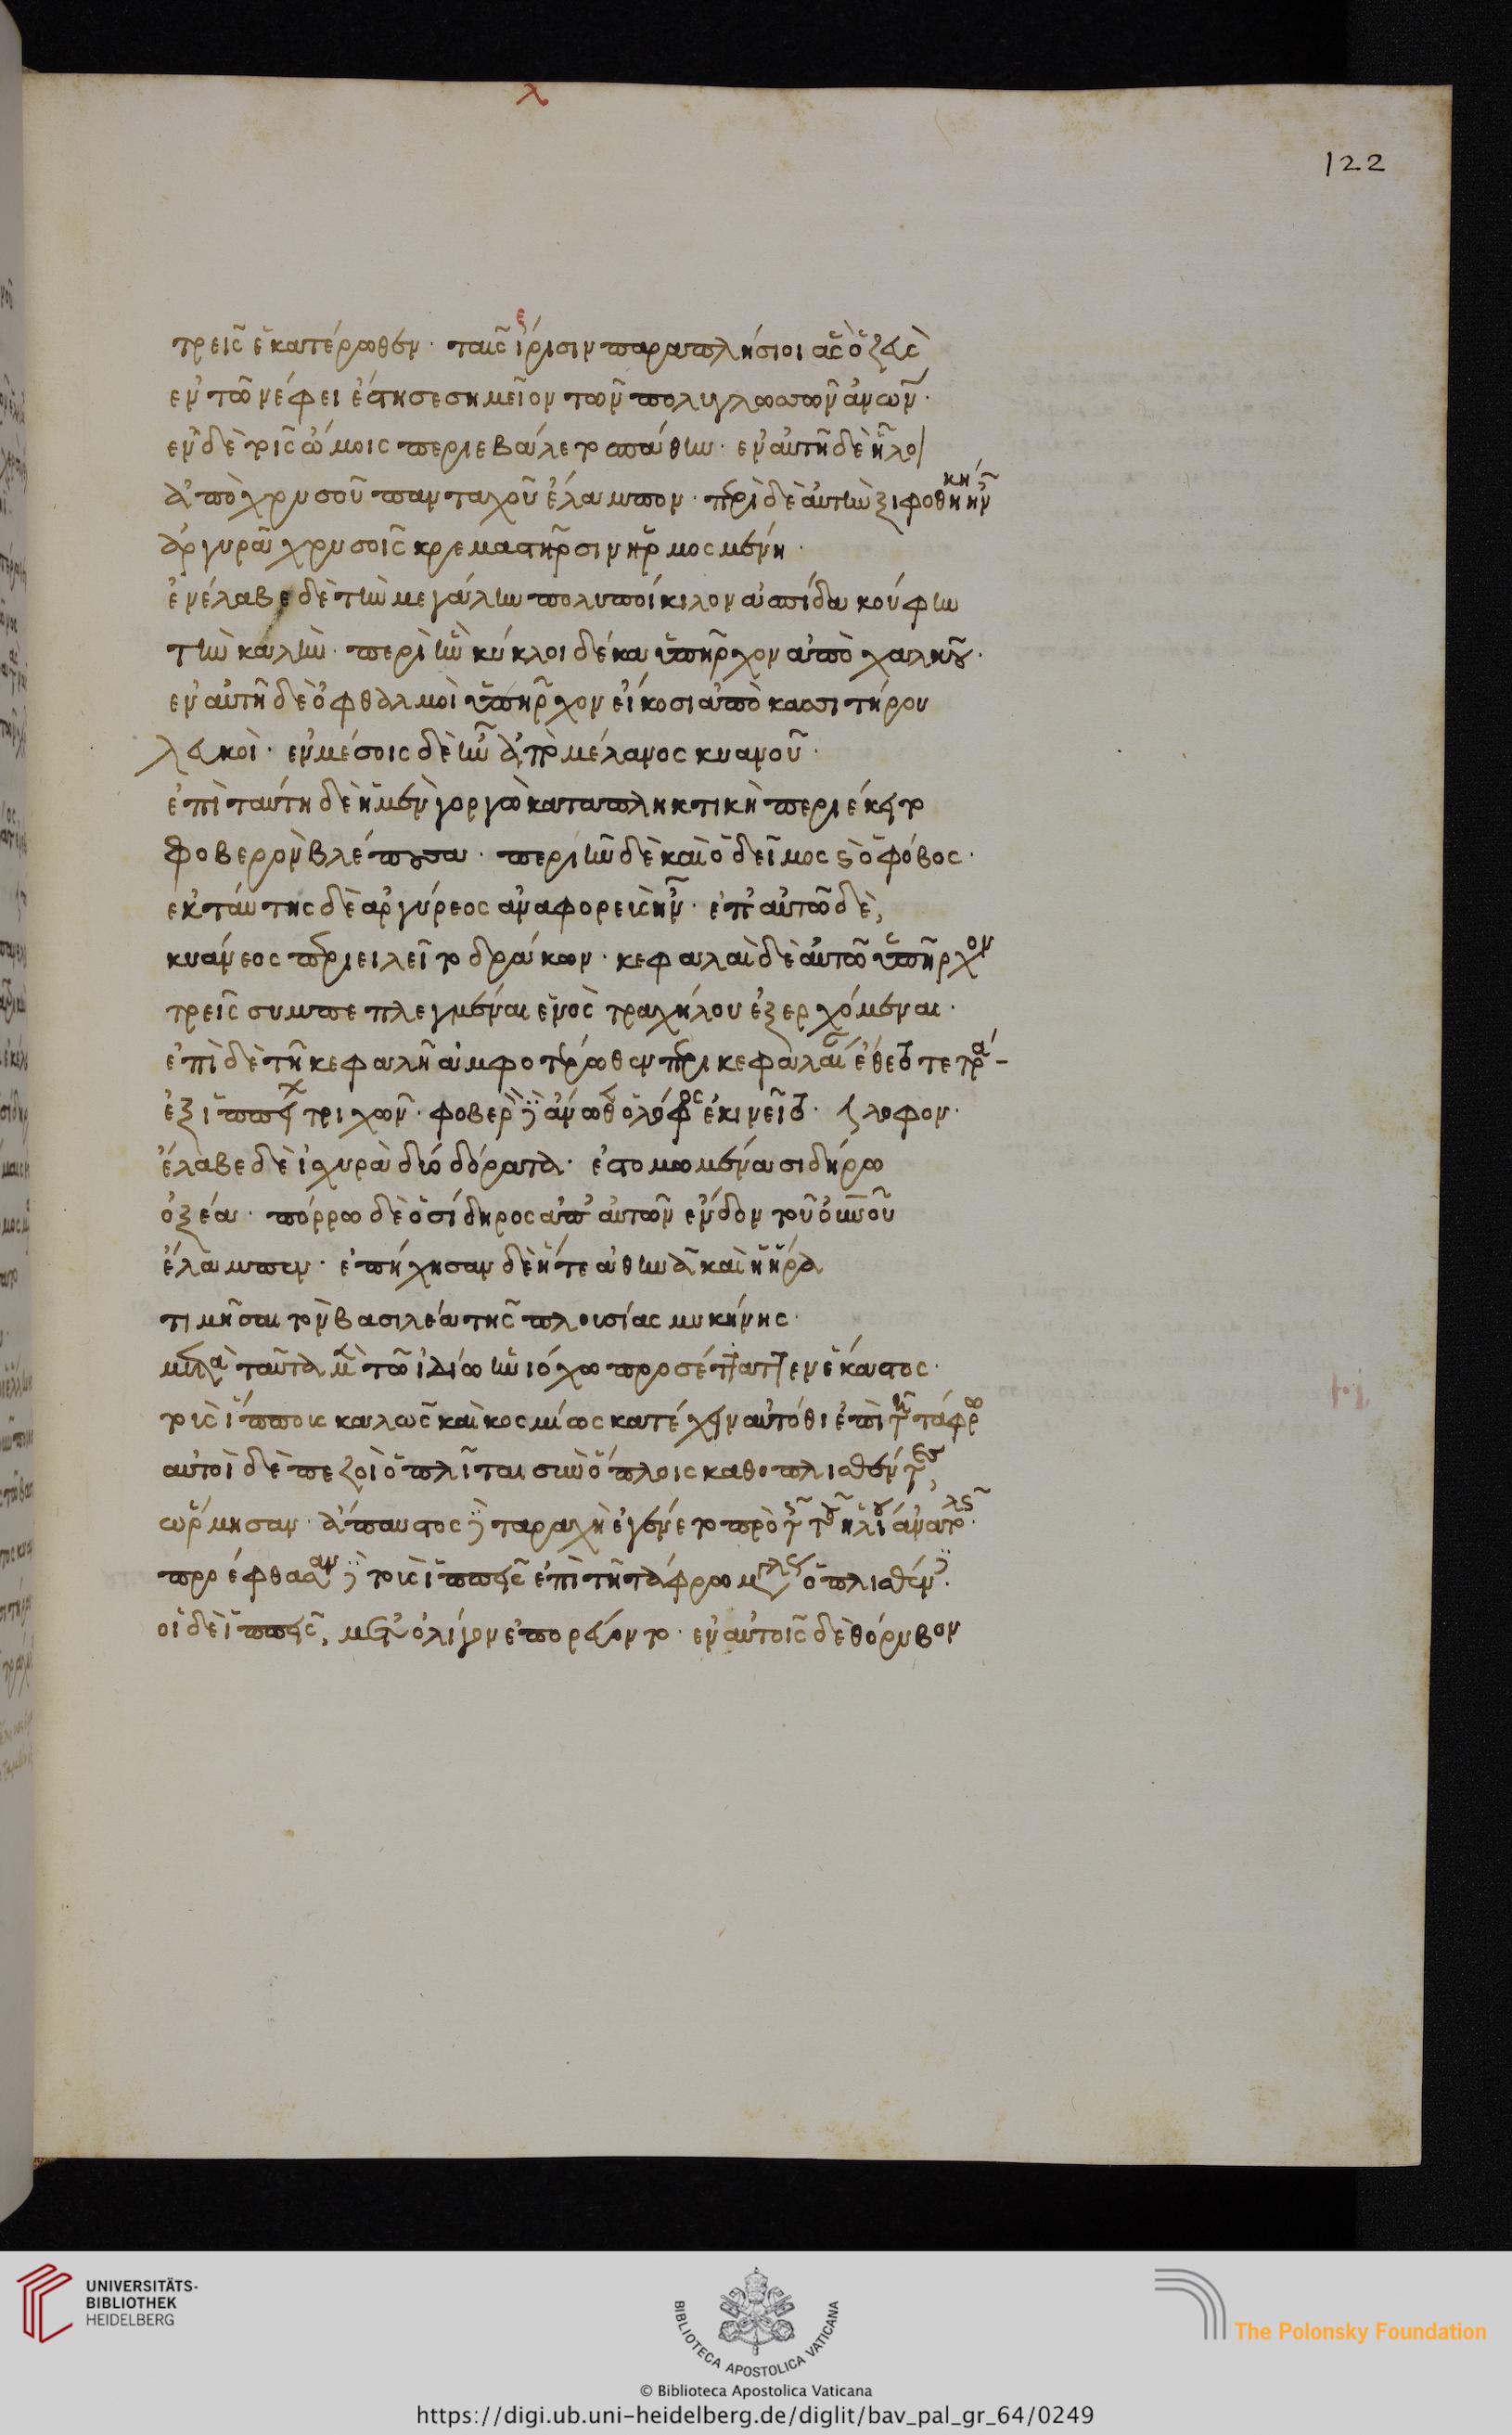 λ
122
τρεῖς ἑκατέρωθεν· ταῖς ἴρισιν παραπλήσιοι ἃς ὁ ζεὺς
ε
ἐν τῶ νέφει ἔστησε σημεῖον τῶν πολυγλώσσων ἀνων·
ἐν δὲ τοῖς ὤμοις περιεβάλετο σπάθην· ἐν αὐτῆ δὲ ἧλοι
ἀπὸ χρυσοῦ πανταχοῦ ἔλαμπον· περὶ δὲ αὐτὴν ξιφοθήκη ἦν
ἀργυρᾶ χρυσοῖς κρεμαστῆρσιν ἡρμοσμένη·
ἐνέλαβε δὲ τὴν μεγάλην πολυποίκιλον ἀσπίδα κούφην
τὴν καλὴν· περὶ ἣν κύκλοι δέκα ὑπῆρχον ἀπὸ χαλκοῦ·
ἐν αὐτῆ δὲ ὀφθαλμοὶ ὑπῆρχον εἴκοσι ἀπὸ κασσιτήρου
λευκοὶ· ἐν μέσοις δὲ ἦν ἀπὸ μέλανος κυανοῦ·
ἐπὶ ταύτη δὲ ἡ μὲν γοργὼ καταπληκτικὴ περιέκειτο
φοβερὸν βλέπουσα· περὶ ἣν δὲ καὶ ὁ δεῖμος κ ὁ φόβος·
ἐκ ταύτης δὲ ἀργύρεος ἀναφορεὺς ἦν· ἐπ' αὐτῶ δὲ,
κυάνεος περιειλεῖτο δράκων· κεφαλαὶ δὲ αὐτῶ ὑπῆρχον
τρεῖς συμπεπλεγμέναι ἑνὸς τραχήλου ἐξερχόμεναι·
ἐπὶ δὲ τῆ κεφαλῆ ἀμφοτέρωθεν περικεφαλαίαν ἔθετο τετρα-
ἐξ ἱππείων τριχῶν· φοβερὸν δὲ ἄνωθεν ὁ λόφος ἐκινεῖτο· λοφον·
ἔλαβε δὲ ἰσχυρὰ δύο δόρατα· ἐστομωμένα σιδήρω
ὀξέα· πόρρω δὲ ὁ σίδηρος ἀπ' αὐτῶν ἔνδον τοῦ οὐνοῦ
ἔλαμπεν· ἐπήχησαν δὲ ἥτε ἀθηνᾶ καὶ ἡ ἥρα
τιμῆσαι τὸν βασιλέα τῆς πλουσίας μυκήνης·
μετὰ ταῦτα μὲν τῶ ἰδίω ἡνιόχω προσέταττεν ἕκαστος·
τοὺς ἵππους καλῶς καὶ κοσμίως κατέχειν αὐτόθι ἐπὶ τῆ τάφρω
αὐτοὶ δὲ πεζοὶ ὁπλῖται σὺν ὅπλοις καθοπλισθέντες,
ὥρμησαν· ἄπαυστος δὲ ταραχὴ ἐγένετο πρὸ τῆς τοῦ ἡλίου ἀνατολῆς·
προέφθασαν δὲ τοὺς ἱππεῖς ἐπὶ τῆ τάφρω μεγάλως ὁπλισθέντες·
οἱ δὲ ἱππεῖς, μετ' ὀλίγον ἐπορεύοντο· ἐν αὐτοῖς δὲ θόρυβον
UNIVERSITÄTS-
BIBLIOTHEK
HEIDELBERG
BIBLIOTECA APOSTOLICA VATICANA
The Polonsky Foundation
© Biblioteca Apostolica Vaticana
https://digi.ub.uni-heidelberg.de/diglit/bav_pal_gr_64/0249